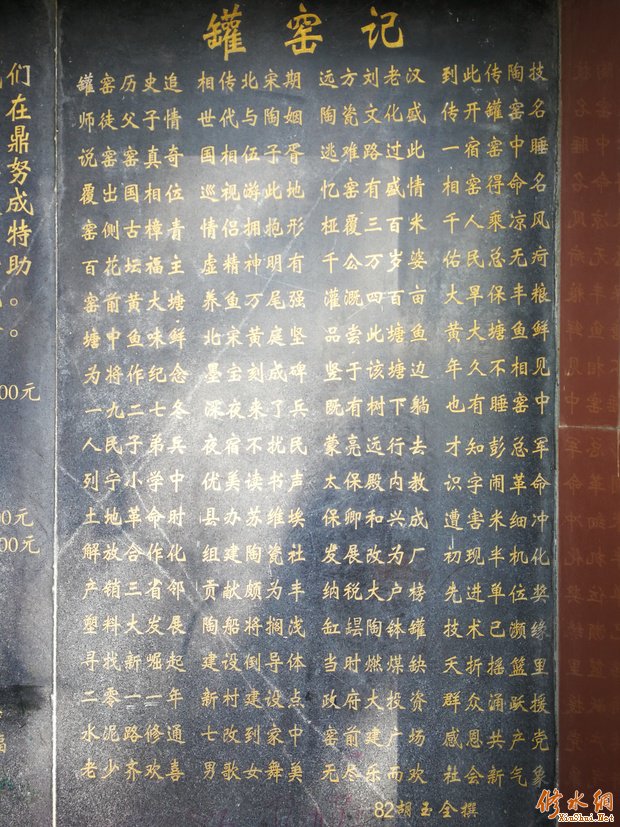 罐窑记
罐窑历史追 相传北宋期 远方刘老汉 到此传陶技
师徒父子情 世代与陶姻 陶瓷文化盛 传开罐窑名
说窑窑真奇 国相伍子胥 逃难路过此 一宿窑中睡
覆出国相位 巡视游此地 忆窑有盛情 相窑得命名
窑侧古樟青 情侣拥抱形 桠覆三百米 千人乘凉风
百花坛福主 虚精神明有 千公万岁婆 佑民总无疴
窑前黄大塘 养鱼万尾强 灌溉四百亩 大旱保丰粮
塘中鱼味鲜 北宋黄庭坚 品尝此塘鱼 黄大塘鱼鲜
为将作纪念 墨宝刻成碑 竖于该塘边 年久不相见
一九二七冬 深夜来了兵 既有树下躺 也有睡窑中
人民子弟兵 夜宿不扰民 蒙亮远行去 才知彭总军
列宁小学中 优美读书声 太保殿内教 识字闹革命
土地革命时 县办苏维埃 保卿和兴成 遭害米细冲
解放合作化 组建陶瓷社 发展改为厂 初现半机化
产销三省邻 贡献颇为丰 纳税大户榜 先进单位奖
塑料大发展 陶船将搁浅 缸坛陶钵罐 技术已濒缘
寻找新崛起 建设倒导体 当时燃煤缺 夭折摇篮里
二零一一年 新村建设点 政府大投资 群众涌跃援
水泥路修通 七改到家中 窑前建广场 感恩共产党
老少齐欢喜 男歌女舞美 无尽乐而欢 社会新气象
82胡玉全撰
们
在
鼎
努
成
特
助
。
00元
00元
00元
福
修水网
XiuShui.Net